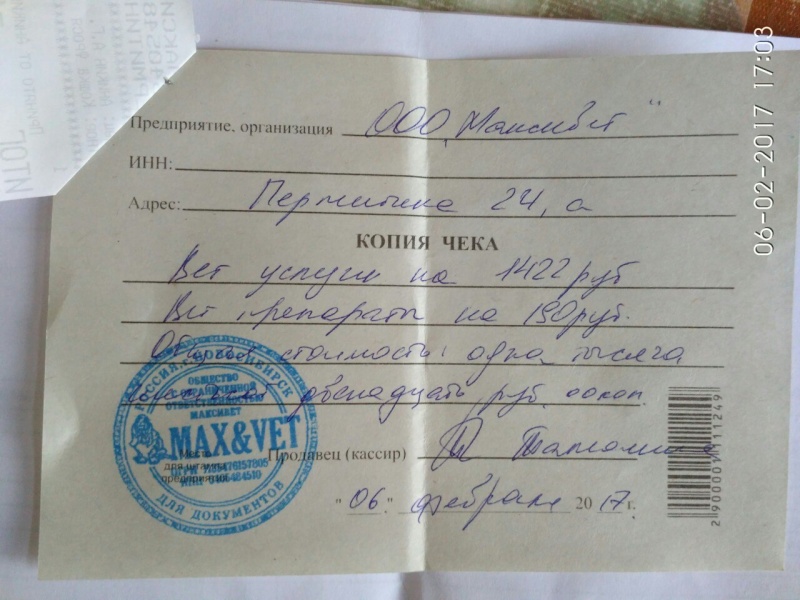 06-02-2017 17:03
Предприятие, организация ООО „Максивет"
ИНН:
Адрес: Пермитина 24, а
КОПИЯ ЧЕКА
Вет услуги на 1422 руб
Вет препараты на 190 руб.
Общая стоимость: одна тысяча
шестьсот двенадцать руб. 00 коп.
Продавец (кассир)
Место
для штампа
предприятия
РОССИЯ, г. НОВОСИБИРСК
ОБЩЕСТВО
С ОГРАНИЧЕННОЙ
ОТВЕТСТВЕННОСТЬЮ
МАКСИВЕТ
MAX&VET
ДЛЯ ДОКУМЕНТОВ
"06." февраля 2017 г.
2 900001 111249